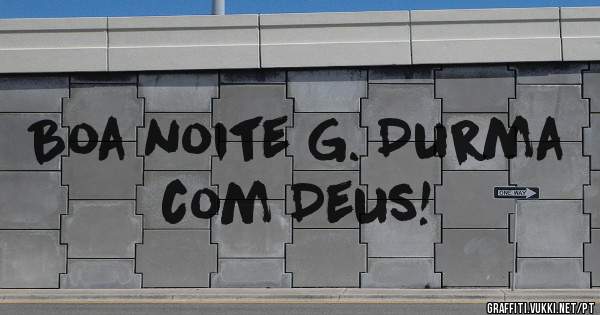 BOA NOITE G. DURMA
COM DEUS!
ONE WAY
GRAFFITI.VUKKI.NET/PT